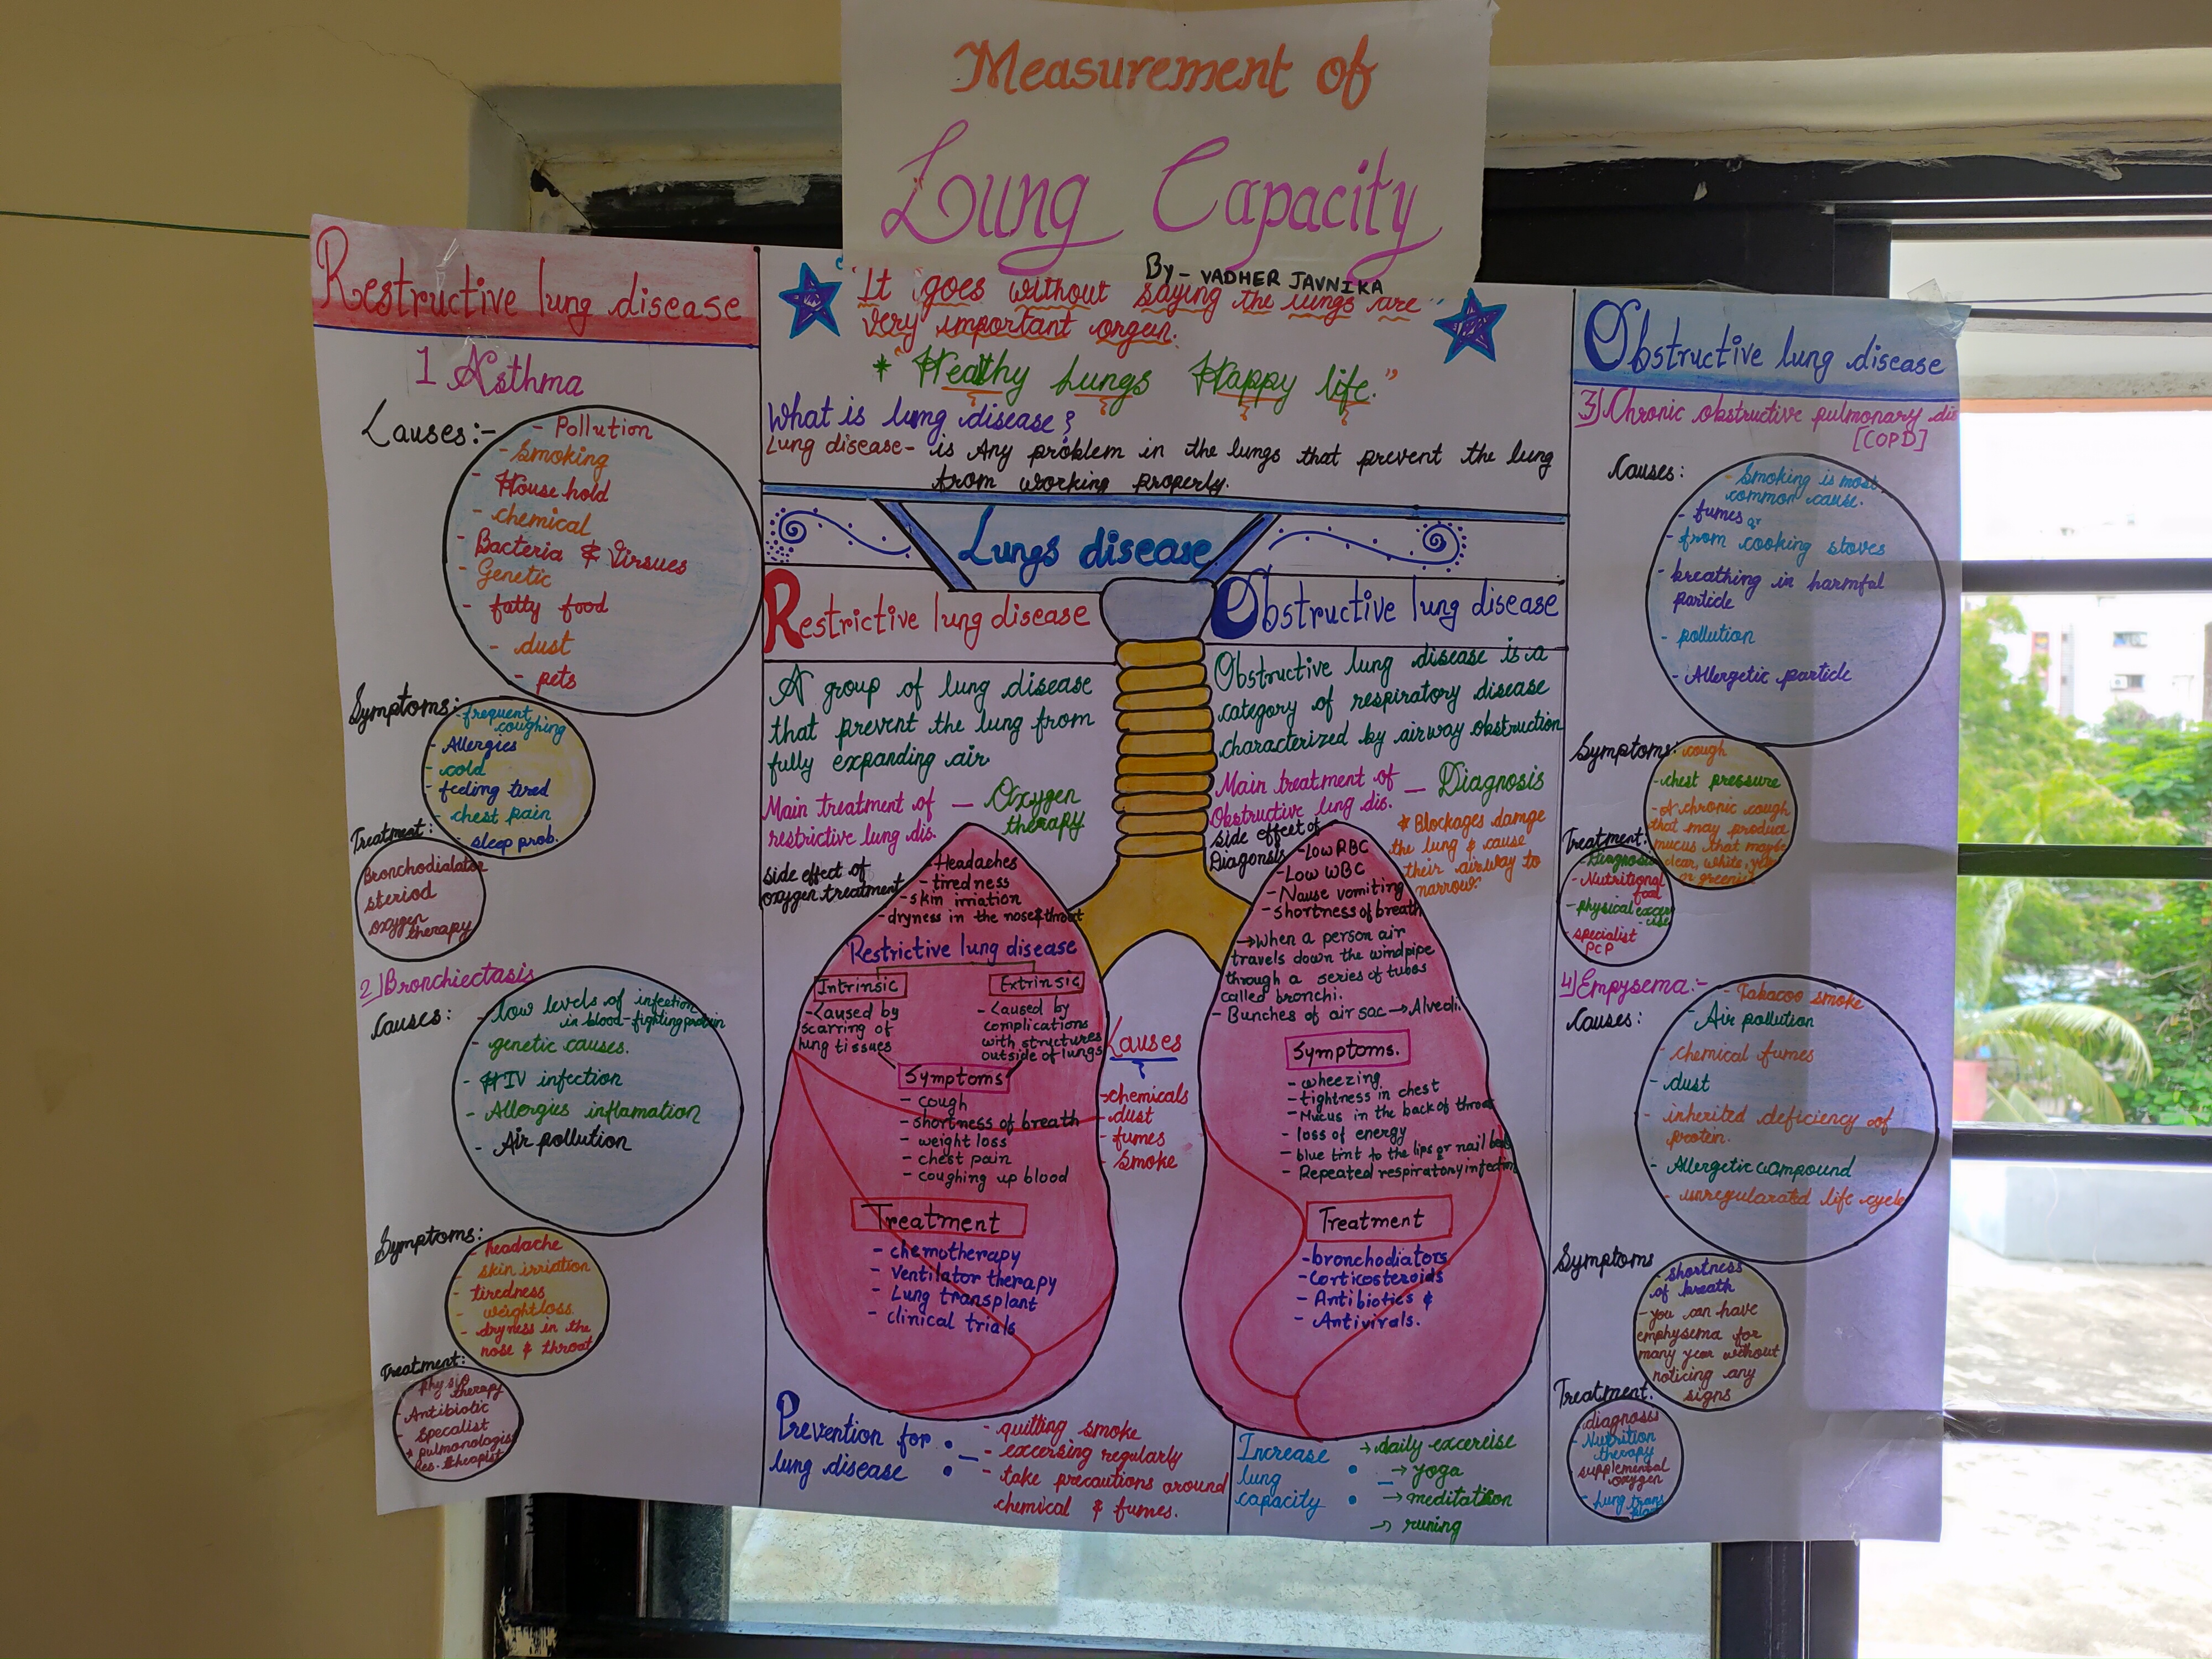 Measurement of
Lung Capacity
By - VADHER JAVNIKA
"It goes without saying the lungs are"
very important organ.
* "Healthy Lungs Happy life."
What is lung disease?
Lung disease - is Any problem in the lungs that prevent the lung
from working properly.
Restructive lung disease
1 Asthma
Causes:-
- Pollution
- Smoking
- House hold
- chemical
- Bacteria & Virsues
- Genetic
- fatty food
- dust
- pets
Symptoms:
- frequent
coughing
- Allergies
- cold
- feeling tired
- chest pain
- sleep prob.
Treatment:
Bronchodialator
steriod
oxygen
therapy
2) Bronchiectasis
Causes:
- low levels of infection
in blood-fighting protein
- genetic causes.
- HIV infection
- Allergies inflamation
- Air pollution
Symptoms:
- headache
- skin irriation
- tiredness
- weightloss.
- dryness in the
nose & throat
Treatment:
- Physio
therapy
- Antibiotic
- specalist
* pulmonologist
Res. theapist
Lungs disease
Restrictive lung disease
A group of lung disease
that prevent the lung from
fully expanding air.
Main treatment of
restrictive lung dis.
- Oxygen
therapy
side effect of
oxygen treatment
- Headaches
- tiredness
- skin irriation
- dryness in the nose & throat
Restrictive lung disease
Intrinsic
- Caused by
scarring of
lung tissues
Extrinsic
- Caused by
complications
with structures
outside of lungs
Symptoms
- cough
- shortness of breath
- weight loss
- chest pain
- coughing up blood
Treatment
- chemotherapy
- ventilator therapy
- Lung transplant
- clinical trials
Causes
- chemicals
- dust
- fumes
- smoke
Obstructive lung disease
Obstructive lung disease is a
category of respiratory disease
characterized by airway obstruction
Main treatment of
Obstructive lung dis.
- Diagnosis
side effect of
Diagonsis
- Low RBC
- Low WBC
- Nause vomiting
- shortness of breath
* Blockages damge
the lung & cause
their airway to
narrow.
→ When a person air
travels down the windpipe
through a series of tubos
called bronchi.
- Bunches of air sac → Alveoli.
Symptoms.
- wheezing
- tightness in chest
- Mucus in the back of throat
- loss of energy
- blue tint to the lips or nail beds
- Repeated respiratory infection
Treatment
- bronchodiators
- Corticosteroids
- Antibiotics &
- Antivirals.
Prevention for
lung disease
- quitting smoke
- excersing regularly
- take precautions around
chemical & fumes.
Increase
lung
capacity
→ daily excereise
→ yoga
→ meditation
→ runing
Obstructive lung disease
3) Chronic obstructive pulmonary dis
[COPD]
Causes:
- Smoking is most
common cause.
- fumes or
- from cooking stoves
- breathing in harmful
particle
- pollution
- Allergetic particle
Symptoms:
- cough
- chest pressure
- A chronic cough
that may produce
mucus that maybe
clear, white,
or greenish
Treatment:
- Diagnosis
- Nutritional
food
- physical excer
- cise
- specialist
PCP
4) Empysema:-
Causes:
- Tabacoo smoke
- Air pollution
- chemical fumes
- dust
- inherited deficiency of
protein.
- Allergetic compound
- unregularated life cycle
Symptoms
- shortness
of breath
- you can have
emphysema for
many year without
noticing any
signs
Treatment:
diagnosis
- Nutrition
therapy
- supplemental
oxygen
- Lung trans
plant